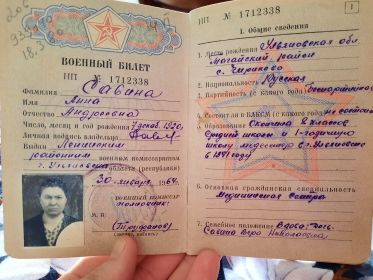 ВОЕННЫЙ БИЛЕТ
НП № 1712338
Фамилия Савина
Имя Анна
Отчество Андреевна
Число, месяц и год рождения 1920
Личная подпись владельца
Выдан Ленинским
районным военным комиссариатом
г. Ульяновска области (республики)
30 января 1964
ВОЕННЫЙ КОМИССАР
М. П.
(Труфанов)
НП № 1712338
1
I. Общие сведения
1. Место рождения Ульяновская обл
район
2. Национальность Русская
3. Партийность (с какого года) беспартийная
4. Состоит ли в ВЛКСМ (с какого года) не состоит
5. Образование Окончила классов
средней школы и 1-годичную
школу медсестер г. Ульяновске
в 1941 году
6. Основная гражданская специальность
Медицинская сестра
7. Семейное положение Вдова: дочь
Савина Вера Николаевна